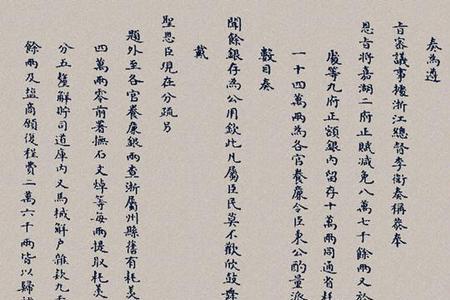 奏為遵
旨審議事據浙江總督李衛奏稱茲奉
恩旨將嘉湖二府正賦減免八萬七千餘兩又於
處等九府正額銀內留存十萬兩同通省耗
一十四萬兩為各官養廉令臣秉公酌量派
數目奏
聞餘銀存為公用欽此凡屬臣民莫不歡欣鼓舞
戴
聖恩臣現在分疏另
題外至各官養廉銀兩查浙屬州縣舊有耗羡
四萬兩零前署撫石文焯等每兩提取耗羡
分五釐解貯司道庫內又馬械解戶雜款九千
餘兩及鹽商願復程費二萬六千兩皆以歸